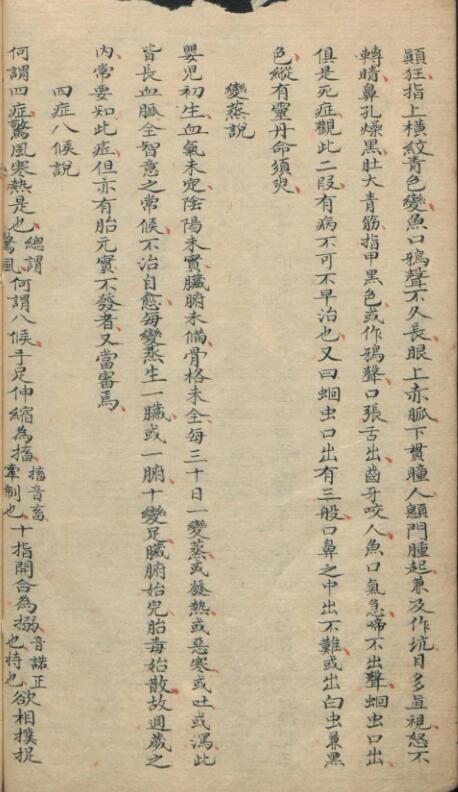 顛狂指上橫紋青色變魚口鴉聲不久長眼上赤脉下貫瞳人顖門腫起兼及作坑目多直視怒不
轉睛鼻孔燥黑肚大青筋指甲黑色或作鴉聲口張舌出齒牙咬人魚口氣急啼不出聲蛔虫口出
俱是死症觀此二段有病不可不早治也又曰蛔虫口出有三般口鼻之中出不難或出白虫兼黑
色縱有靈丹命須灾
變蒸說
嬰児初生血氣未定陰陽未實臟腑未備骨格未全每三十日一變蒸或發熱或惡寒或吐或瀉此
皆長血脉全智意之常候不治自愈每變蒸生一臟或一腑十變足臟腑始完胎毒始散故週歲之
內常要知此症但亦有胎元實不發者又當審焉
四症八候說
何謂四症驚風寒熱是也總謂驚風何謂八候手足伸縮為搐搐音畜牽制也十指開合為搦音諾正也持也欲相撲捉